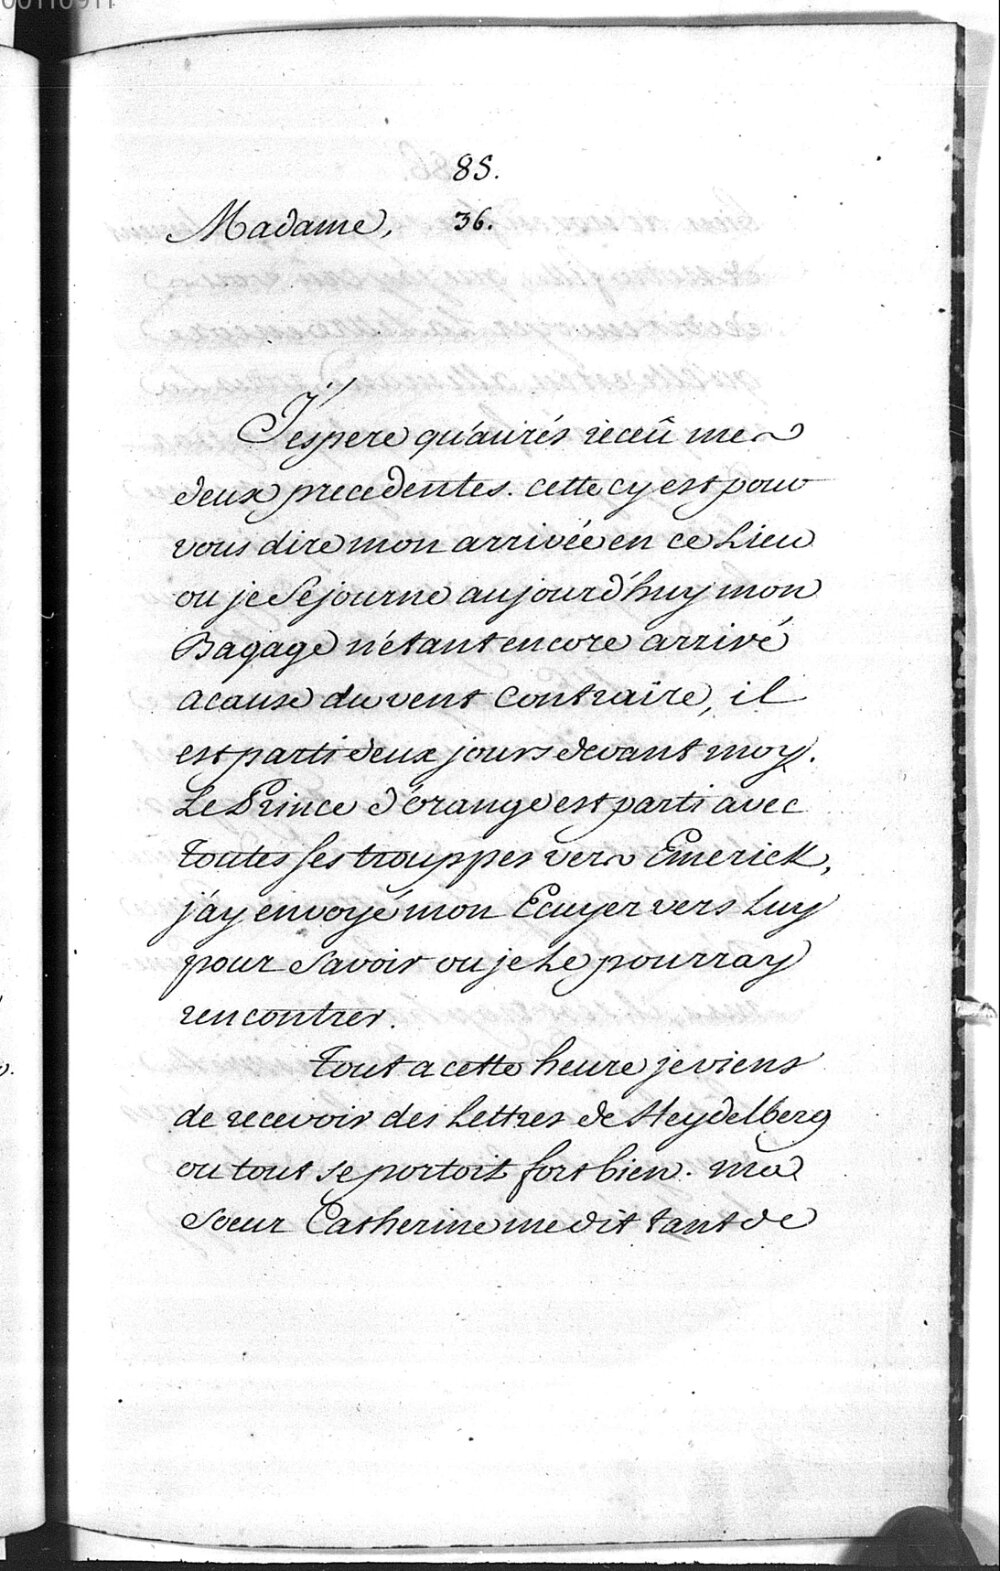 00110911
85.
Madame, 36.
J'espere qu'aurés receû mes
deux precedentes. cette cy est pour
vous dire mon arrivée en ce Lieu
ou je Sejourne aujourd'huy mon
Bagage n'étant encore arrivé
a cause du vent Contraire, il
est parti deux jours devant moy.
Le Prince d'Orange est parti avec
Toutes ses trouppes vers Emerick,
j'ay envoyé mon Ecuyer vers Luy
pour Savoir ou je Le pourray
rencontrer.
Tout a cette heure je viens
de recevoir des Lettres de Heydelberg
ou tout se portoit fort bien. ma
Soeur Catherine me dit tant de